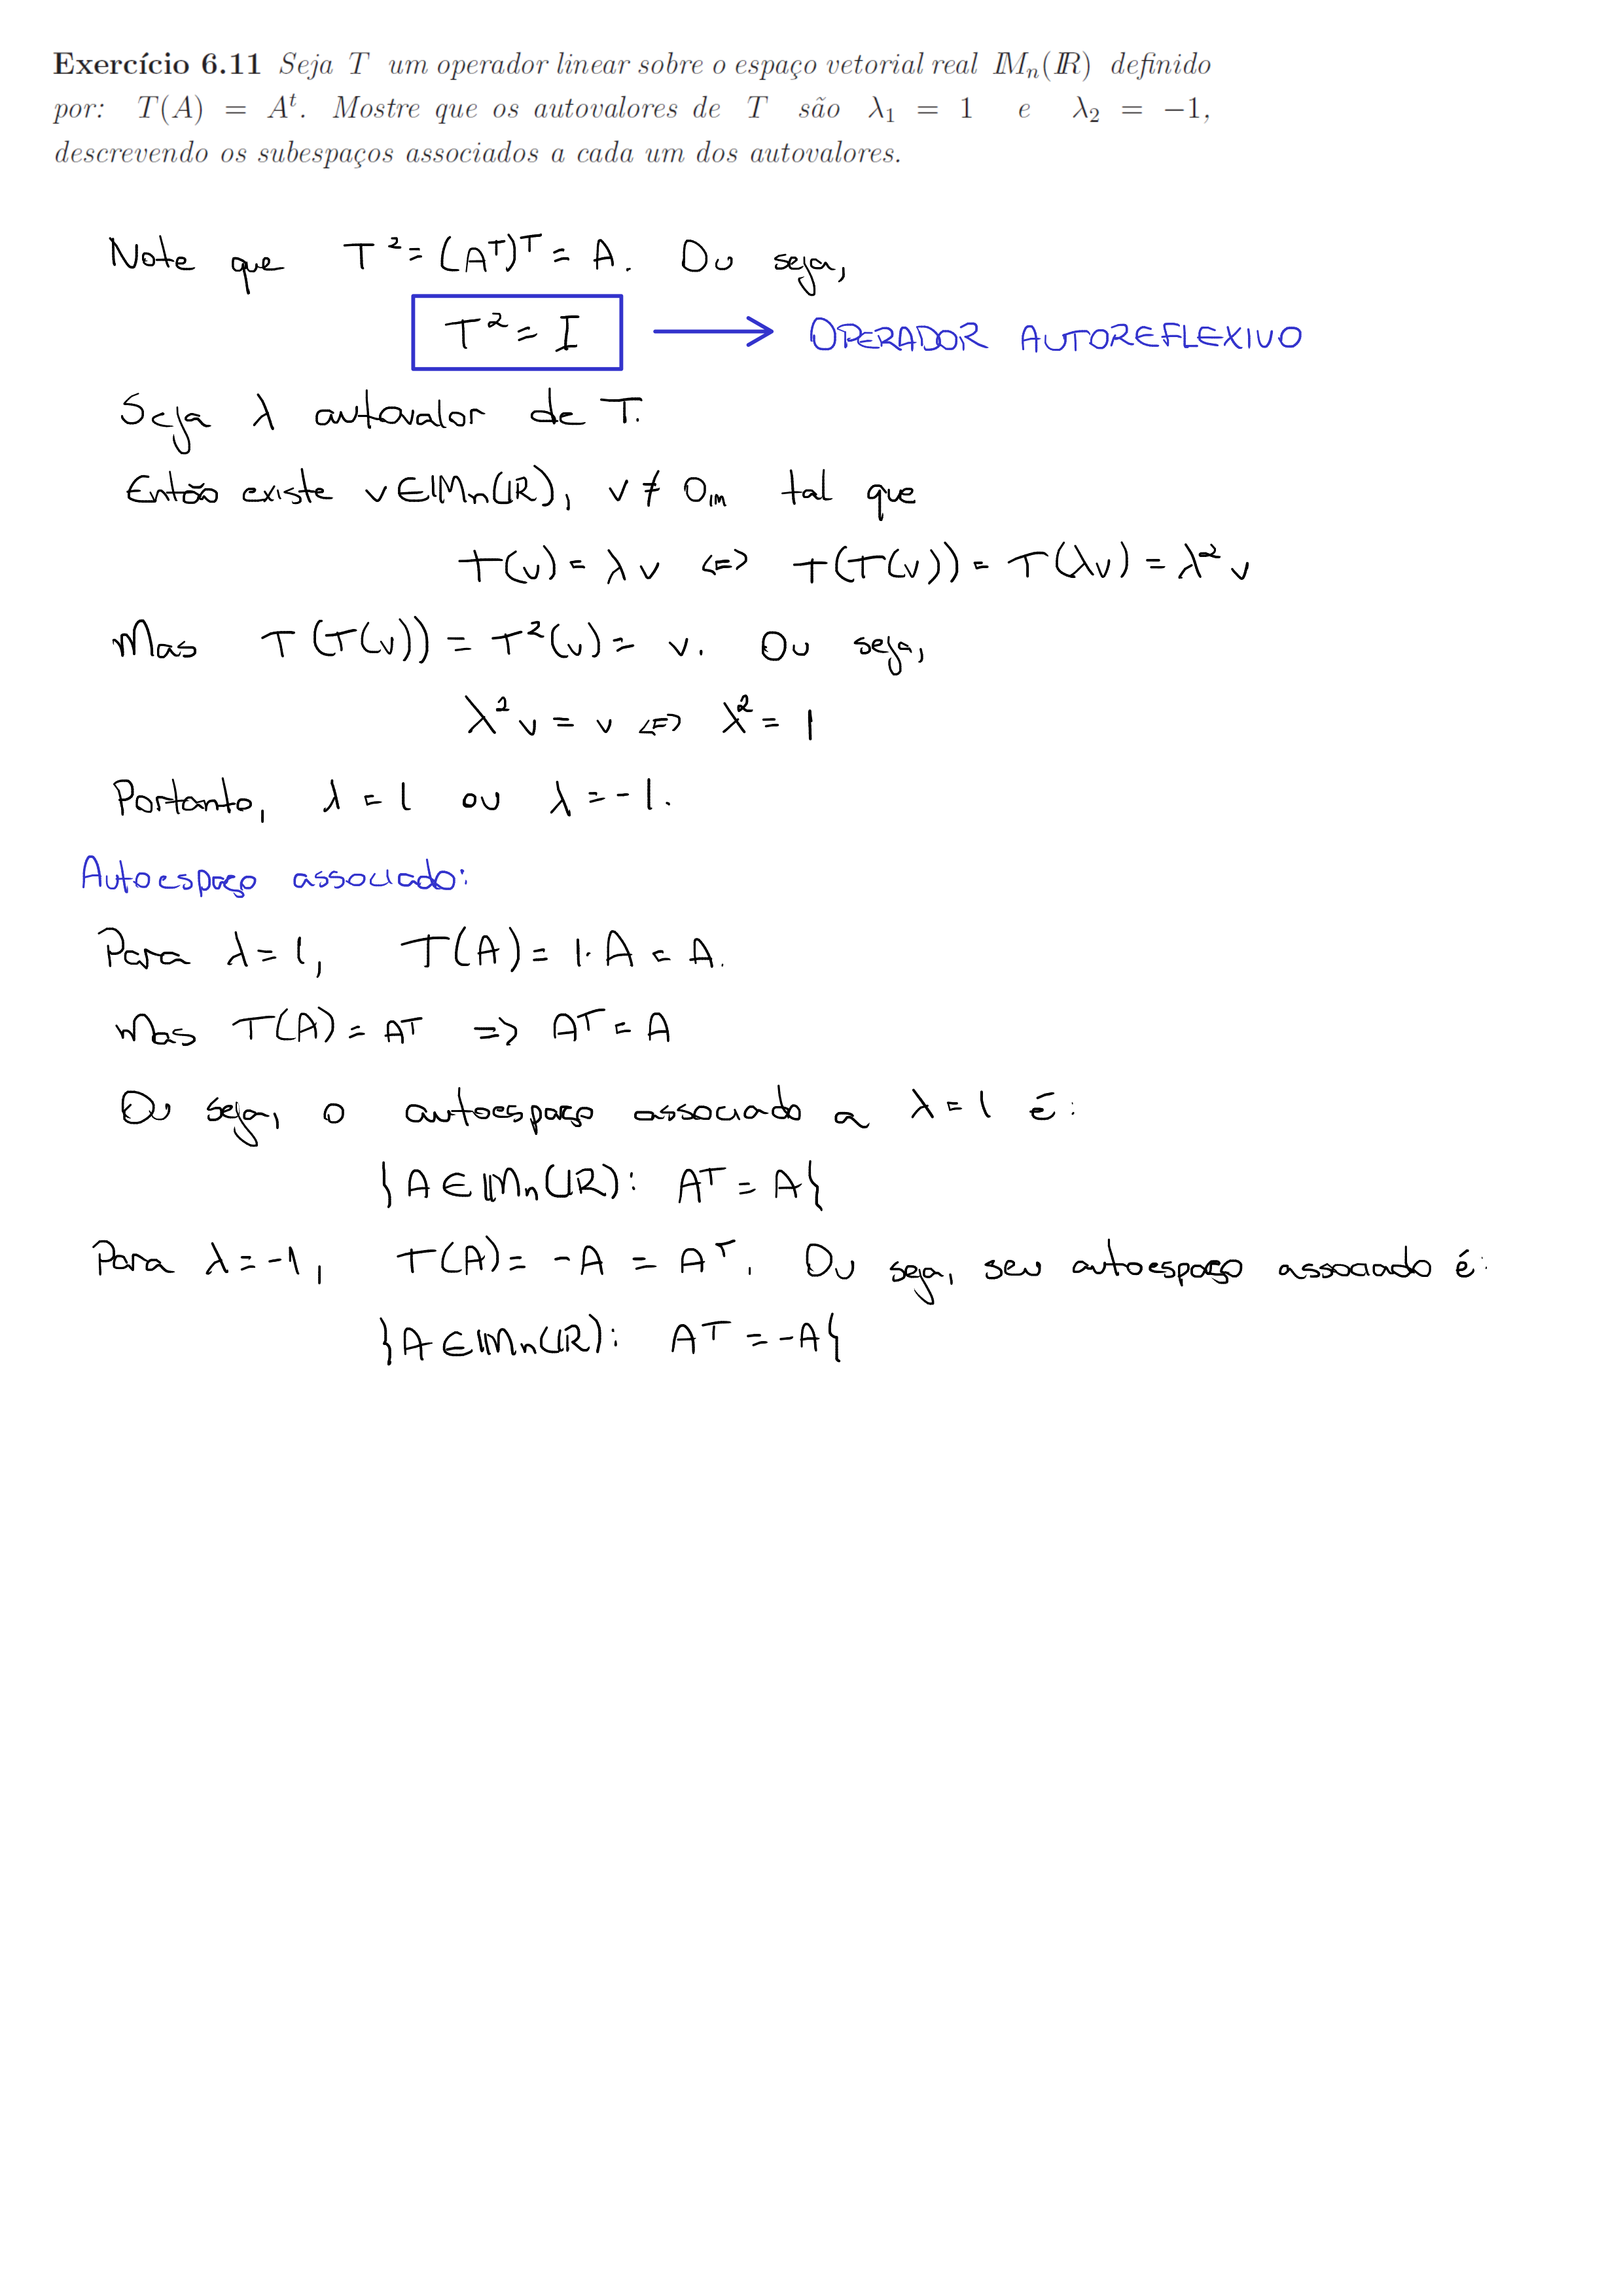 Exercício 6.11 Seja T um operador linear sobre o espaço vetorial real 𝕄ₙ(ℝ) definido
por: T(A) = Aᵗ. Mostre que os autovalores de T são λ₁ = 1 e λ₂ = −1,
descrevendo os subespaços associados a cada um dos autovalores.
Note que T² = (Aᵀ)ᵀ = A. Ou seja,
T² = I → OPERADOR AUTOREFLEXIVO
Seja λ autovalor de T.
Então existe v ∈ 𝕄ₙ(ℝ), v ≠ 0_𝕄 tal que
T(v) = λv <=> T(T(v)) = T(λv) = λ²v
Mas T(T(v)) = T²(v) = v. Ou seja,
λ²v = v <=> λ² = 1
Portanto, λ = 1 ou λ = -1.
Autoespaço associado:
Para λ = 1, T(A) = 1·A = A.
Mas T(A) = Aᵀ => Aᵀ = A
Ou seja, o autoespaço associado a λ = 1 é:
{A ∈ 𝕄ₙ(ℝ): Aᵀ = A}
Para λ = -1, T(A) = -A = Aᵀ. Ou seja, seu autoespaço associado é:
{A ∈ 𝕄ₙ(ℝ): Aᵀ = -A}